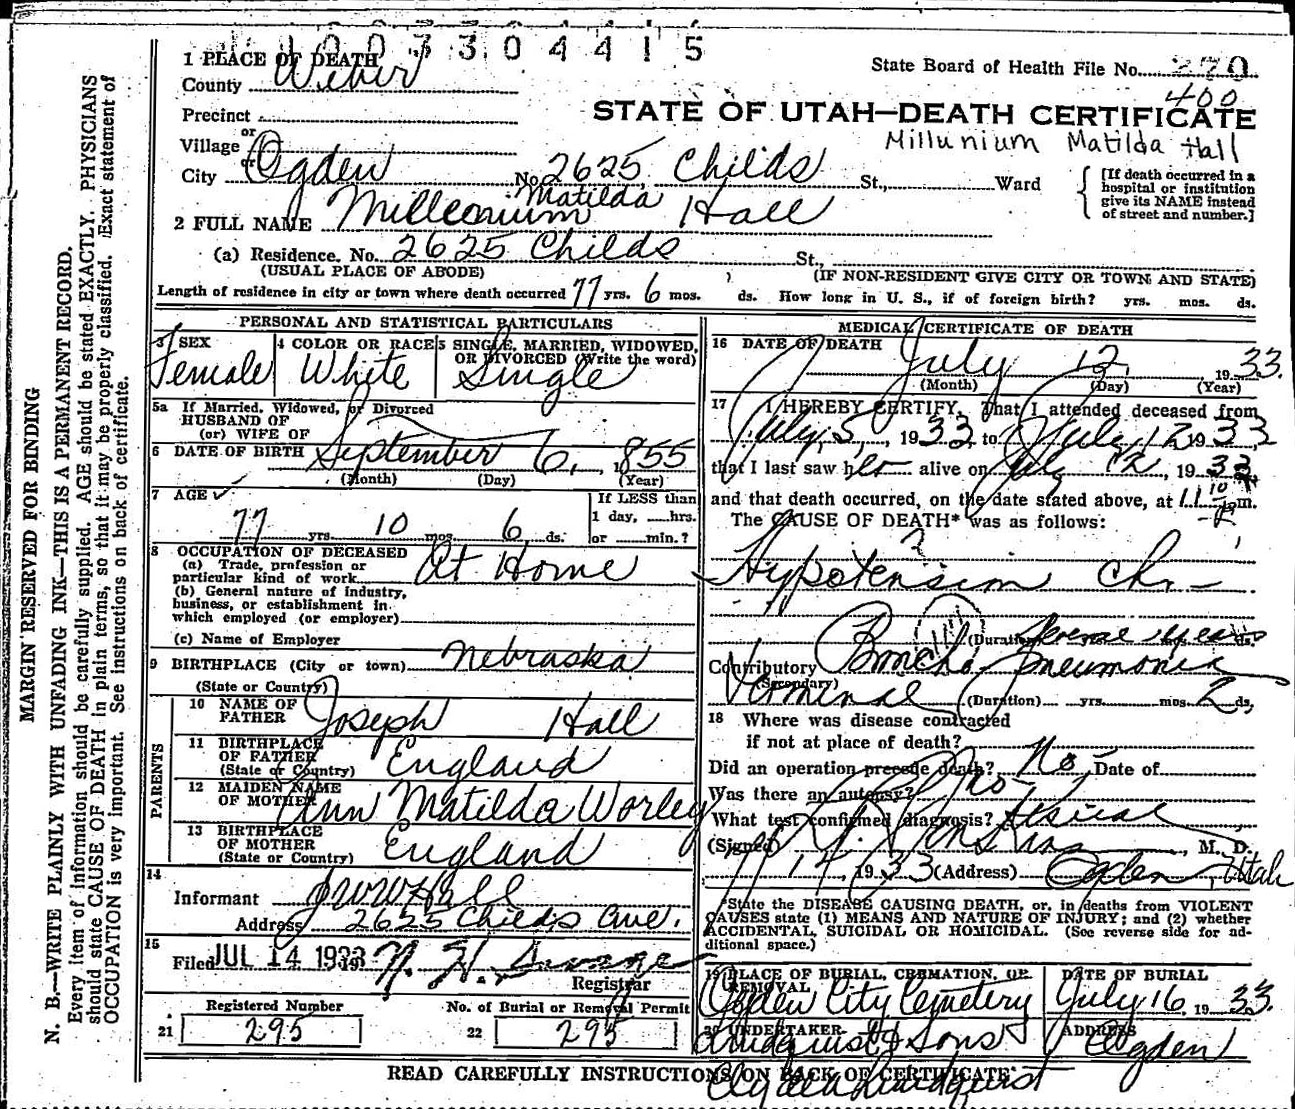 1007304415
1 PLACE OF DEATH
County Weber
State Board of Health File No. 270
400
Precinct
STATE OF UTAH—DEATH CERTIFICATE
or
Village
Millunium Matilda Hall
or
City Ogden No. 2625 Childs St., Ward
[If death occurred in a
hospital or institution
give its NAME instead
of street and number.]
Matilda
2 FULL NAME Millenium Hall
(a) Residence. No. 2625 Childs St.,
(USUAL PLACE OF ABODE) (IF NON-RESIDENT GIVE CITY OR TOWN AND STATE)
Length of residence in city or town where death occurred 77 yrs. 6 mos. ds. How long in U. S., if of foreign birth? yrs. mos. ds.
PERSONAL AND STATISTICAL PARTICULARS
3 SEX 4 COLOR OR RACE 5 SINGLE, MARRIED, WIDOWED,
OR DIVORCED (Write the word)
Female White Single
5a If Married, Widowed, or Divorced
HUSBAND OF
(or) WIFE OF
6 DATE OF BIRTH September 6, 1855
(Month) (Day) (Year)
7 AGE
77 yrs. 10 mos. 6 ds.
If LESS than
1 day, hrs.
or min.?
8 OCCUPATION OF DECEASED
(a) Trade, profession or
particular kind of work At Home
(b) General nature of industry,
business, or establishment in
which employed (or employer)
(c) Name of Employer
9 BIRTHPLACE (City or town) Nebraska
(State or Country)
PARENTS
10 NAME OF
FATHER Joseph Hall
11 BIRTHPLACE
OF FATHER
(State or Country) England
12 MAIDEN NAME
OF MOTHER Ann Matilda Worley
13 BIRTHPLACE
OF MOTHER
(State or Country) England
14
Informant Hall
Address 2625 Childs Ave.
15
Filed JUL 14 1933 19
Registrar
Registered Number
21 295
No. of Burial or Removal Permit
22 295
MEDICAL CERTIFICATE OF DEATH
16 DATE OF DEATH July 12, 1933.
(Month) (Day) (Year)
17 I HEREBY CERTIFY, That I attended deceased from
July 5, 1933 to July 12 1933
that I last saw her alive on July 12, 1933
and that death occurred, on the date stated above, at 11 10 P m.
The CAUSE OF DEATH* was as follows:
?
Hypotension Chr.
(Duration) several years ds.
Contributory Broncho Pneumonia
(Secondary)
Terminal (Duration) yrs. mos. 2 ds.
18 Where was disease contracted
if not at place of death?
Did an operation precede death? No Date of
Was there an autopsy? No
What test confirmed diagnosis?
(Signed) , M. D.
7/14, 1933 (Address) Ogden, Utah
*State the DISEASE CAUSING DEATH, or, in deaths from VIOLENT
CAUSES state (1) MEANS AND NATURE OF INJURY; and (2) whether
ACCIDENTAL, SUICIDAL OR HOMICIDAL. (See reverse side for ad-
ditional space.)
19 PLACE OF BURIAL, CREMATION, OR
REMOVAL
Ogden City Cemetery
DATE OF BURIAL
July 16, 1933.
20 UNDERTAKER
Lindquist & Sons
ADDRESS
Ogden
Clyde Lindquist
READ CAREFULLY INSTRUCTIONS ON BACK OF CERTIFICATE
MARGIN RESERVED FOR BINDING
N. B.—WRITE PLAINLY WITH UNFADING INK—THIS IS A PERMANENT RECORD.
Every item of information should be carefully supplied. AGE should be stated EXACTLY. PHYSICIANS
should state CAUSE OF DEATH in plain terms, so that it may be properly classified. Exact statement of
OCCUPATION is very important. See instructions on back of certificate.